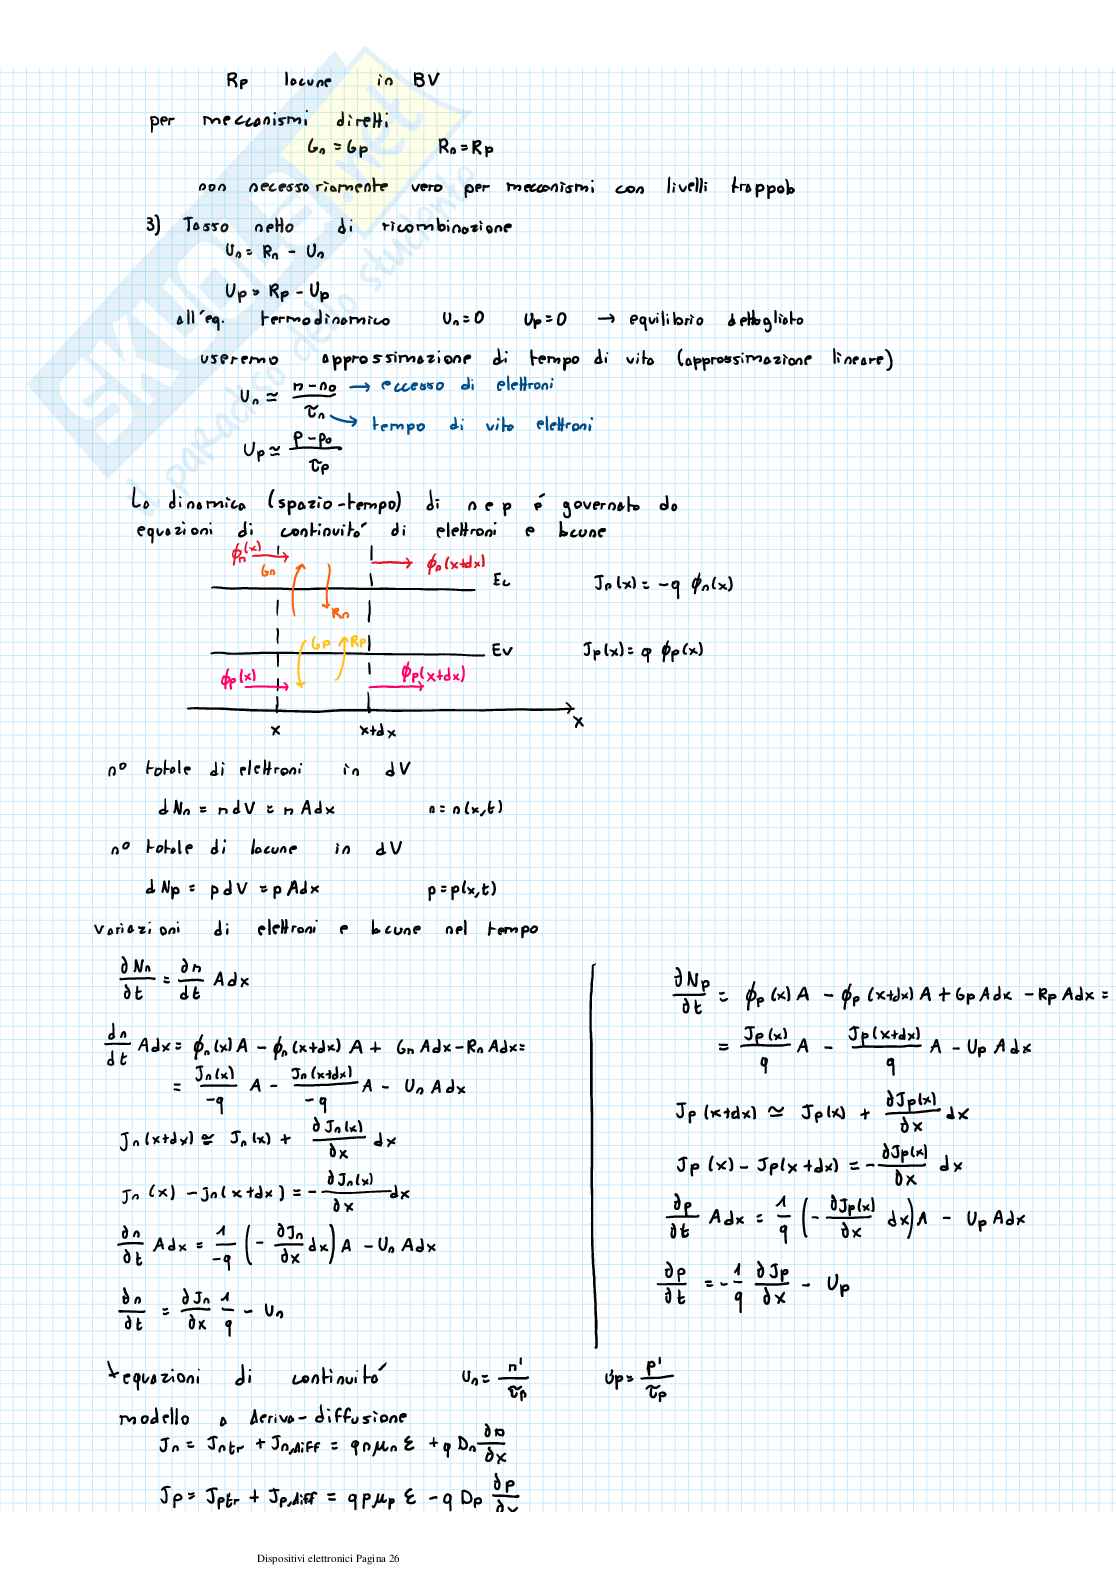 Rp lacune in BV
per meccanismi diretti
Gn = Gp Rn = Rp
non necessariamente vero per meccanismi con livelli trappola
3) Tasso netto di ricombinazione
Un = Rn - Un
Up = Rp - Up
all'eq. termodinamico Un = 0 Up = 0 → equilibrio dettagliato
useremo approssimazione di tempo di vita (approssimazione lineare)
Un ≃ (n - n0)/τn → eccesso di elettroni
→ tempo di vita elettroni
Up ≃ (p - p0)/τp
La dinamica (spazio-tempo) di n e p é governata da
equazioni di continuitá di elettroni e lacune
ϕn(x) ϕn(x+dx)
Gn Rn Ec
Jn(x) = -q ϕn(x)
Gp Rp Ev
Jp(x) = q ϕp(x)
ϕp(x) ϕp(x+dx)
x x+dx x
n° totale di elettroni in dV
dNn = n dV = n Adx n = n(x,t)
n° totale di lacune in dV
dNp = p dV = p Adx p = p(x,t)
variazioni di elettroni e lacune nel tempo
∂Nn/∂t = ∂n/dt Adx
dn/dt Adx = ϕn(x)A - ϕn(x+dx)A + Gn Adx - Rn Adx =
= Jn(x)/-q A - Jn(x+dx)/-q A - Un Adx
Jn(x+dx) ≃ Jn(x) + ∂Jn(x)/∂x dx
Jn(x) - Jn(x+dx) = - ∂Jn(x)/∂x dx
∂n/∂t Adx = 1/-q (- ∂Jn/∂x dx) A - Un Adx
∂n/∂t = ∂Jn/∂x 1/q - Un
∂Np/∂t = ϕp(x)A - ϕp(x+dx)A + Gp Adx - Rp Adx =
= Jp(x)/q A - Jp(x+dx)/q A - Up Adx
Jp(x+dx) ≃ Jp(x) + ∂Jp(x)/∂x dx
Jp(x) - Jp(x+dx) = - ∂Jp(x)/∂x dx
∂p/∂t Adx = 1/q (- ∂Jp(x)/∂x dx) A - Up Adx
∂p/∂t = - 1/q ∂Jp/∂x - Up
+equazioni di continuitá Un = n'/τp Up = p'/τp
modello a deriva-diffusione
Jn = Jn,tr + Jn,diff = q n μn ε + q Dn ∂n/∂x
Jp = Jp,tr + Jp,diff = q p μp ε - q Dp ∂p/∂x
Dispositivi elettronici Pagina 26
SKUOLA.net
il paradiso dello studente